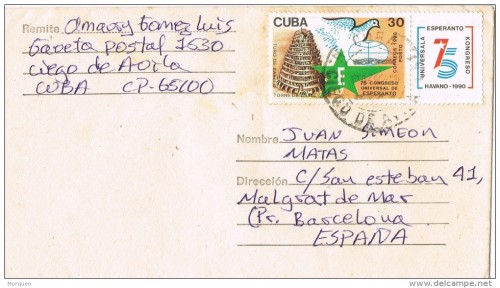 Remite Amaory Gomez Luis
Gaveta postal 7530
Ciego de Avila
CUBA CP-65100
CUBA 30
CORREOS 1990
PORTO
TORRE DE BABEL
75 CONGRESO
UNIVERSAL DE
ESPERANTO
ESPERANTO
UNIVERSALA
75
KONGRESO
HAVANO - 1990
Nombre JUAN SIMEON
MATAS
Dirección C/San esteban 41,
Malgrat de Mar
(Pr. Barcelona
ESPAÑA
Morquen
delcampe.net